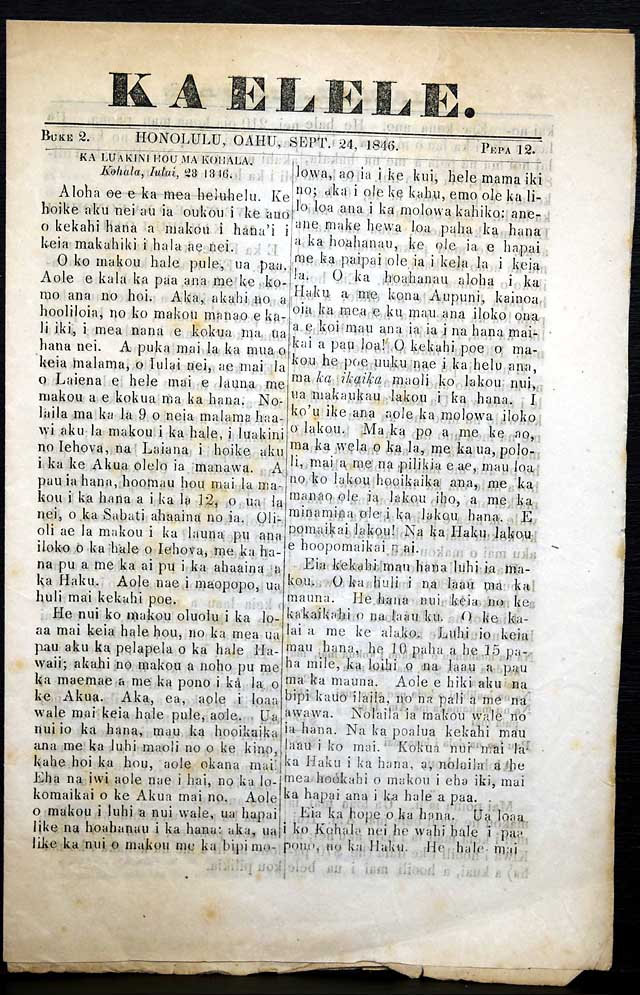 KA ELELE.
BUKE 2. HONOLULU, OAHU, SEPT. 24, 1846. PEPA 12.
KA LUAKINI HOU MA KOHALA.
Kohala, Iulai, 28 1846.
Aloha oe e ka mea heluhelu. Ke
hoike aku nei au ia oukou i ke ano
o kekahi hana a makou i hana'i i
keia makahiki i hala ae nei.
O ko makou hale pule, ua paa.
Aole e kala ka paa ana me ke ko-
mo ana no hoi. Aka, akahi no a
hooliloia, no ko makou manao e ka-
li iki, i mea nana e kokua ma ua
hana nei. A puka mai la ka mua o
keia malama, o Iulai nei, ae mai la
o Laiena e hele mai e launa me
makou a e kokua ma ka hana. No-
laila ma ka la 9 o neia malama haa-
wi aku la makou i ka hale, i luakini
no Iehova, na Laiana i hoike aku
i ka ke Akua olelo ia manawa. A
pau ia hana, hoomau hou mai la ma-
kou i ka hana a i ka la 12, o ua la
nei, o ka Sabati ahaaina no ia. Oli-
oli ae la makou i ka launa pu ana
iloko o ka hale o Iehova, me ka ha-
na pu a me ka ai pu i ka ahaaina a
ka Haku. Aole nae i maopopo, ua
huli mai kekahi poe.
He nui ko makou oluolu i ka lo-
aa mai keia hale hou, no ka mea ua
pau aku ka pelapela o ka hale Ha-
waii; akahi no makou a noho pu me
ka maemae a me ka pono i ka la o
ke Akua. Aka, ea, aole i loaa
wale mai keia hale pule, aole. Ua
nui io ka hana, mau ka hooikaika
ana me ka luhi maoli no o ke kino,
kahe hoi ka hou, aole okana mai!
Eha na iwi aole nae i hai, no ka lo-
komaikai o ke Akua mai no. Aole
o makou i luhi a nui wale, ua hapai
like na hoahanau i ka hana: aka, ua
like ka nui o makou me ka bipi mo-
lowa, ao ia i ke kui, hele mama iki
no; aka i ole ke kahu, emo ole ka li-
lo loa ana i ka molowa kahiko: ane-
ane make hewa loa paha ka hana
a ka hoahanau, ke ole ia e hapai
me ka paipai ole ia i kela la i keia
la. O ka hoahanau aloha i ka
Haku a me kona Aupuni, kainoa
oia ka mea e ku mau ana iloko ona
a e koi mau ana ia ia i na hana mai-
kai a pau loa! O kekahi poe o ma-
kou he poe uuku nae i ka helu ana,
ma ka ikaika maoli ko lakou nui,
ua makaukau lakou i ka hana. I
ko'u ike ana aole ka molowa iloko
o lakou. Ma ka po a me ke ao,
ma ka wela o ka la, me ka ua, polo-
li, mai a me na pilikia e ae, mau loa
no ko lakou hooikaika ana, me ka
manao ole ia lakou iho, a me ka
minamina ole i ka lakou hana. E
pomaikai lakou! Na ka Haku lakou
e hoopomaikai mai.
Eia kekahi mau hana luhi ia ma-
kou. O ka huli i na laau ma ka
mauna. He hana nui keia no ke
kakaikahi o na laau ku. O ke ka-
lai a me ke alako. Luhi io keia
mau hana, he 10 paha a he 15 pa-
ha mile, ka loihi o na laau a pau
ma ka mauna. Aole e hiki aku na
bipi kauo ilaila, no na pali a me na
awawa. Nolaila ia makou wale no
ia hana. Na ka poalua kekahi mau
laau i ko mai. Kokua nui mai la
ka Haku i ka hana, a, nolaila a he
mea hookahi o makou i eha iki, mai
ka hapai ana i ka hale a paa.
Eia ka hope o ka hana. Ua loaa
i ko Kohala nei he wahi hale i paa
pono, no ka Haku. He hale mai